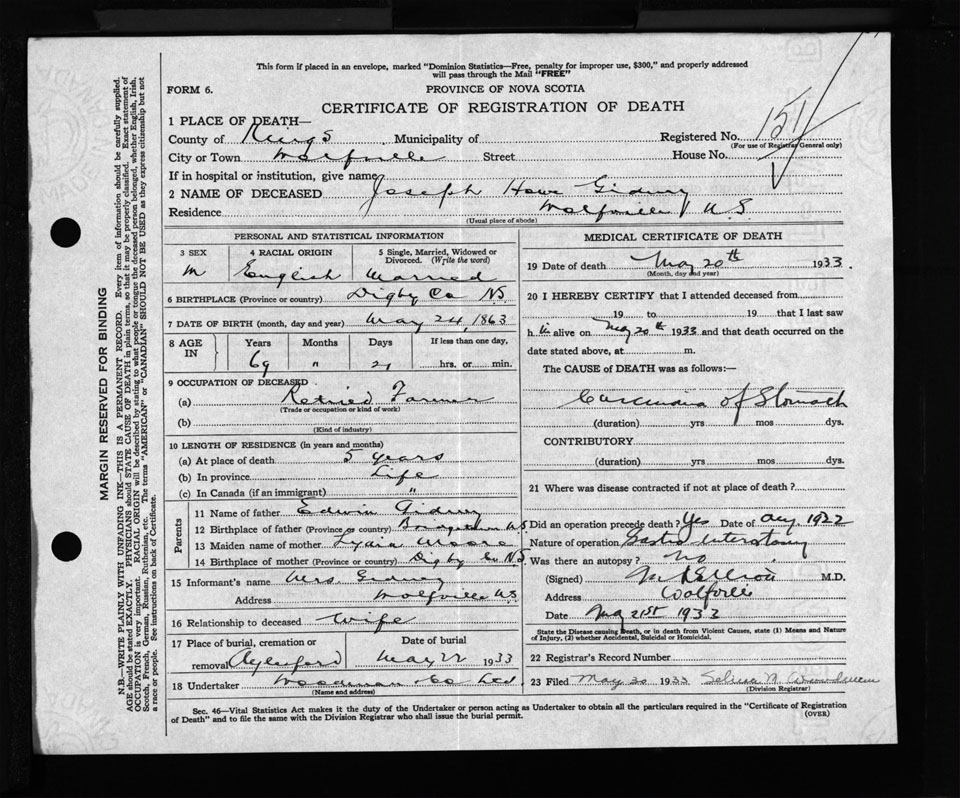 This form if placed in an envelope, marked "Dominion Statistics—Free, penalty for improper use, $300," and properly addressed
will pass through the Mail "FREE"
FORM 6.
PROVINCE OF NOVA SCOTIA
CERTIFICATE OF REGISTRATION OF DEATH
1 PLACE OF DEATH—
County of Kings Municipality of Registered No. 151
(For use of Registrar General only)
City or Town Wolfville Street House No.
If in hospital or institution, give name
2 NAME OF DECEASED Joseph Howe Gidney
Residence Wolfville N.S.
(Usual place of abode)
PERSONAL AND STATISTICAL INFORMATION
3 SEX 4 RACIAL ORIGIN 5 Single, Married, Widowed or
Divorced. (Write the word)
M English Married
6 BIRTHPLACE (Province or country) Digby Co N.S.
7 DATE OF BIRTH (month, day and year) May 24, 1863
8 AGE IN Years Months Days If less than one day,
69 " 21 hrs. or min.
9 OCCUPATION OF DECEASED
(a) Retired Farmer
(Trade or occupation or kind of work)
(b)
(Kind of industry)
10 LENGTH OF RESIDENCE (in years and months)
(a) At place of death 5 years
(b) In province Life
(c) In Canada (if an immigrant) "
Parents
11 Name of father Edwin Gidney
12 Birthplace of father (Province or country) N.S.
13 Maiden name of mother Lydia Moore
14 Birthplace of mother (Province or country) Digby Co N.S.
15 Informant's name Mrs. Gidney
Address Wolfville N.S.
16 Relationship to deceased Wife
17 Place of burial, cremation or Date of burial
removal Aylesford May 22 1933
18 Undertaker Woodman Co Ltd
(Name and address)
MEDICAL CERTIFICATE OF DEATH
19 Date of death May 20th 1933.
(Month, day and year)
20 I HEREBY CERTIFY that I attended deceased from
19 to 19 that I last saw
h im alive on May 20th 1933 and that death occurred on the
date stated above, at m.
The CAUSE of DEATH was as follows:—
Carcinoma of Stomach
(duration) yrs mos dys.
CONTRIBUTORY
(duration) yrs mos dys.
21 Where was disease contracted if not at place of death?
Did an operation precede death? Yes Date of Aug 1922
Nature of operation Gastro Enterostomy
Was there an autopsy? No
(Signed) M.D.
Address Wolfville
Date May 21st 1933
State the Disease causing Death, or in death from Violent Causes, state (1) Means and Nature
of Injury, (2) whether Accidental, Suicidal or Homicidal.
22 Registrar's Record Number
23 Filed May 20 1933
(Division Registrar)
Sec. 46—Vital Statistics Act makes it the duty of the Undertaker or person acting as Undertaker to obtain all the particulars required in the "Certificate of Registration
of Death" and to file the same with the Division Registrar who shall issue the burial permit.
(OVER)
MARGIN RESERVED FOR BINDING
N.B.—WRITE PLAINLY WITH UNFADING INK—THIS IS A PERMANENT RECORD. Every item of information should be carefully supplied.
AGE should be stated EXACTLY. PHYSICIANS should STATE CAUSE OF DEATH in plain terms, so that it may be properly classified. Exact statement of
OCCUPATION is very important. RACIAL ORIGIN will be described by stating to what people or tongue the deceased person belonged, whether English, Irish,
Scotch, French, German, Russian, Ruthenian, etc. The terms "AMERICAN" or "CANADIAN" SHOULD NOT BE USED as they express citizenship but not
a race or people. See instructions on back of Certificate.